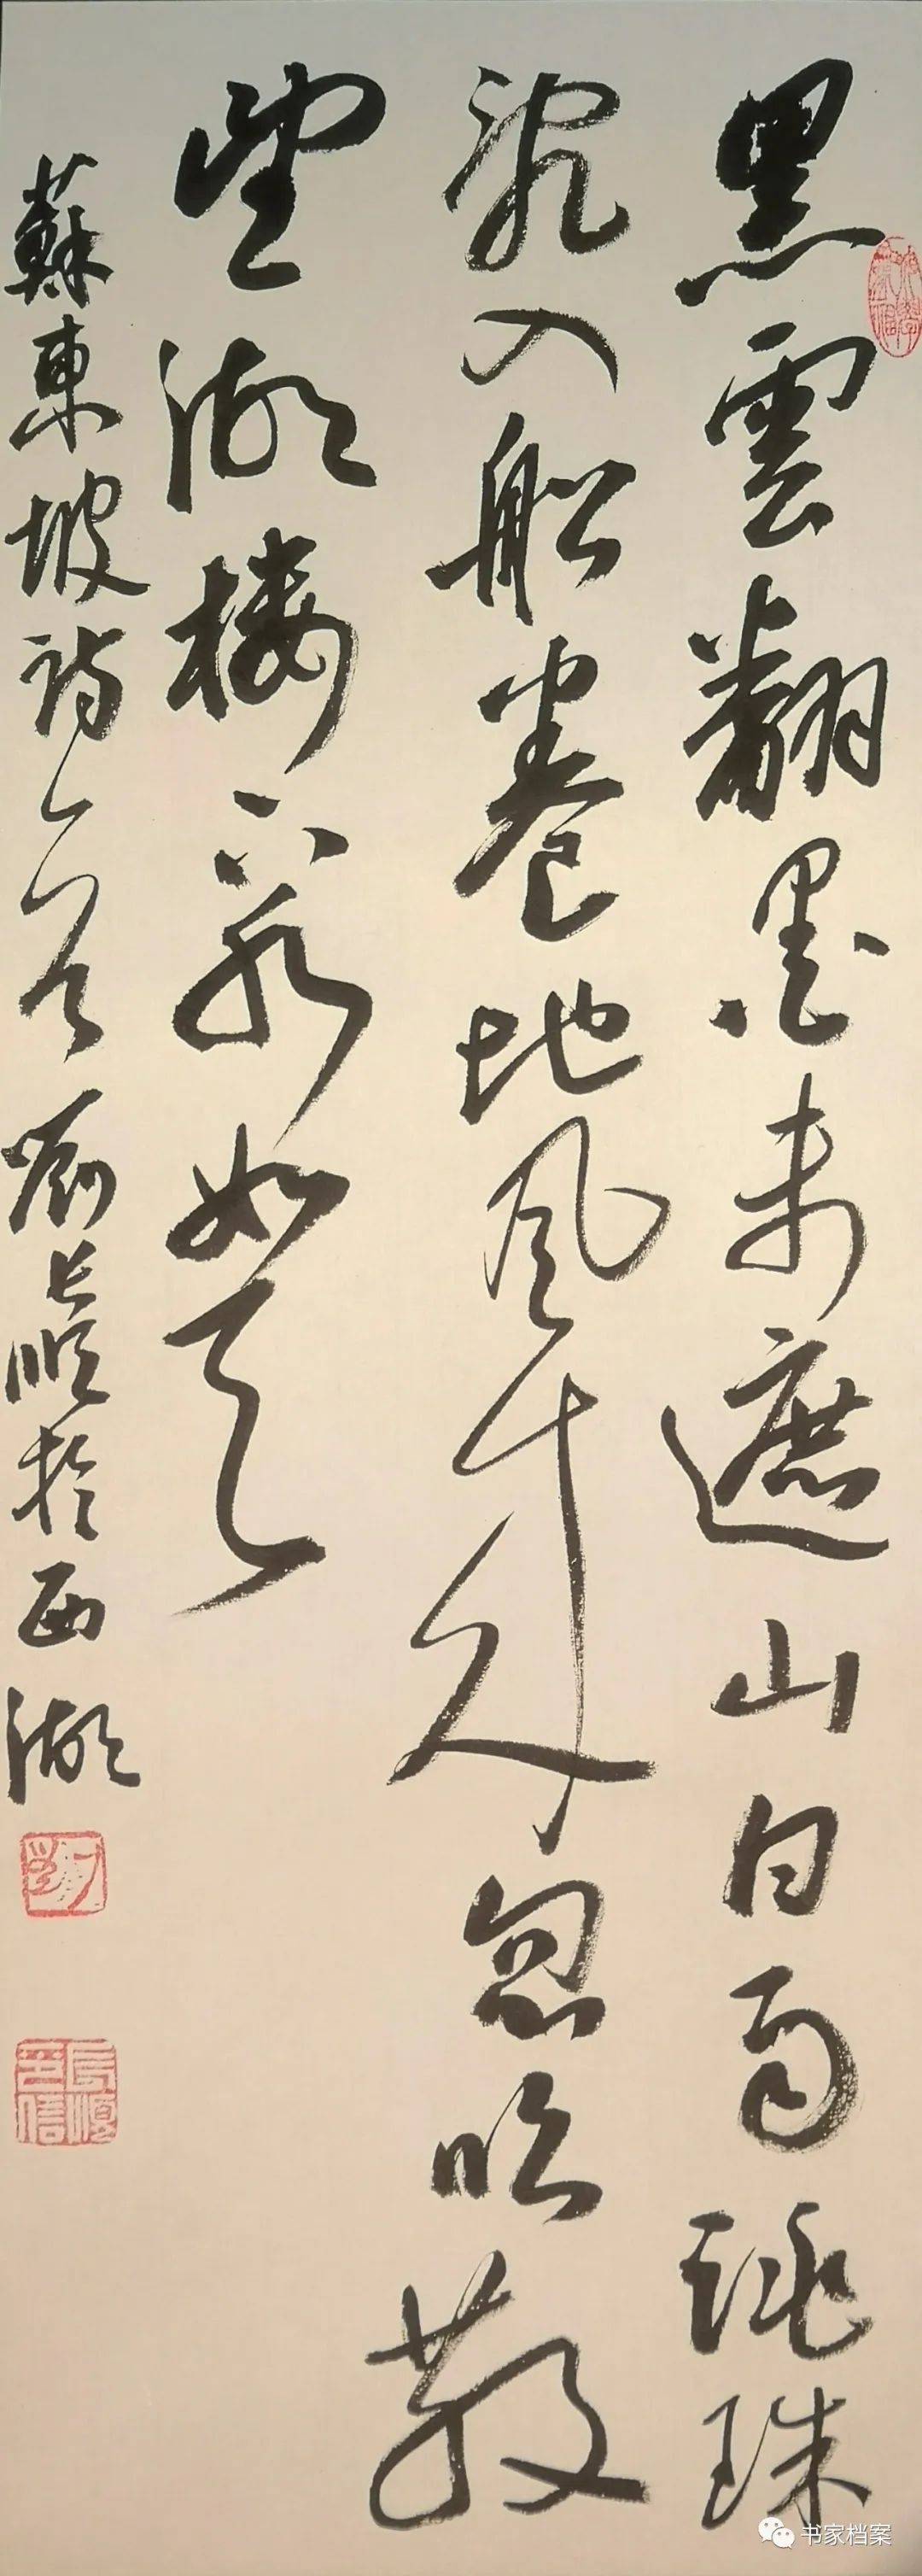 黑雲翻墨未遮山白雨跳珠
亂入船卷地風來忽吹散
望湖樓下水如天
蘇東坡詩一首 劉長順於西湖
長順印信
书家档案